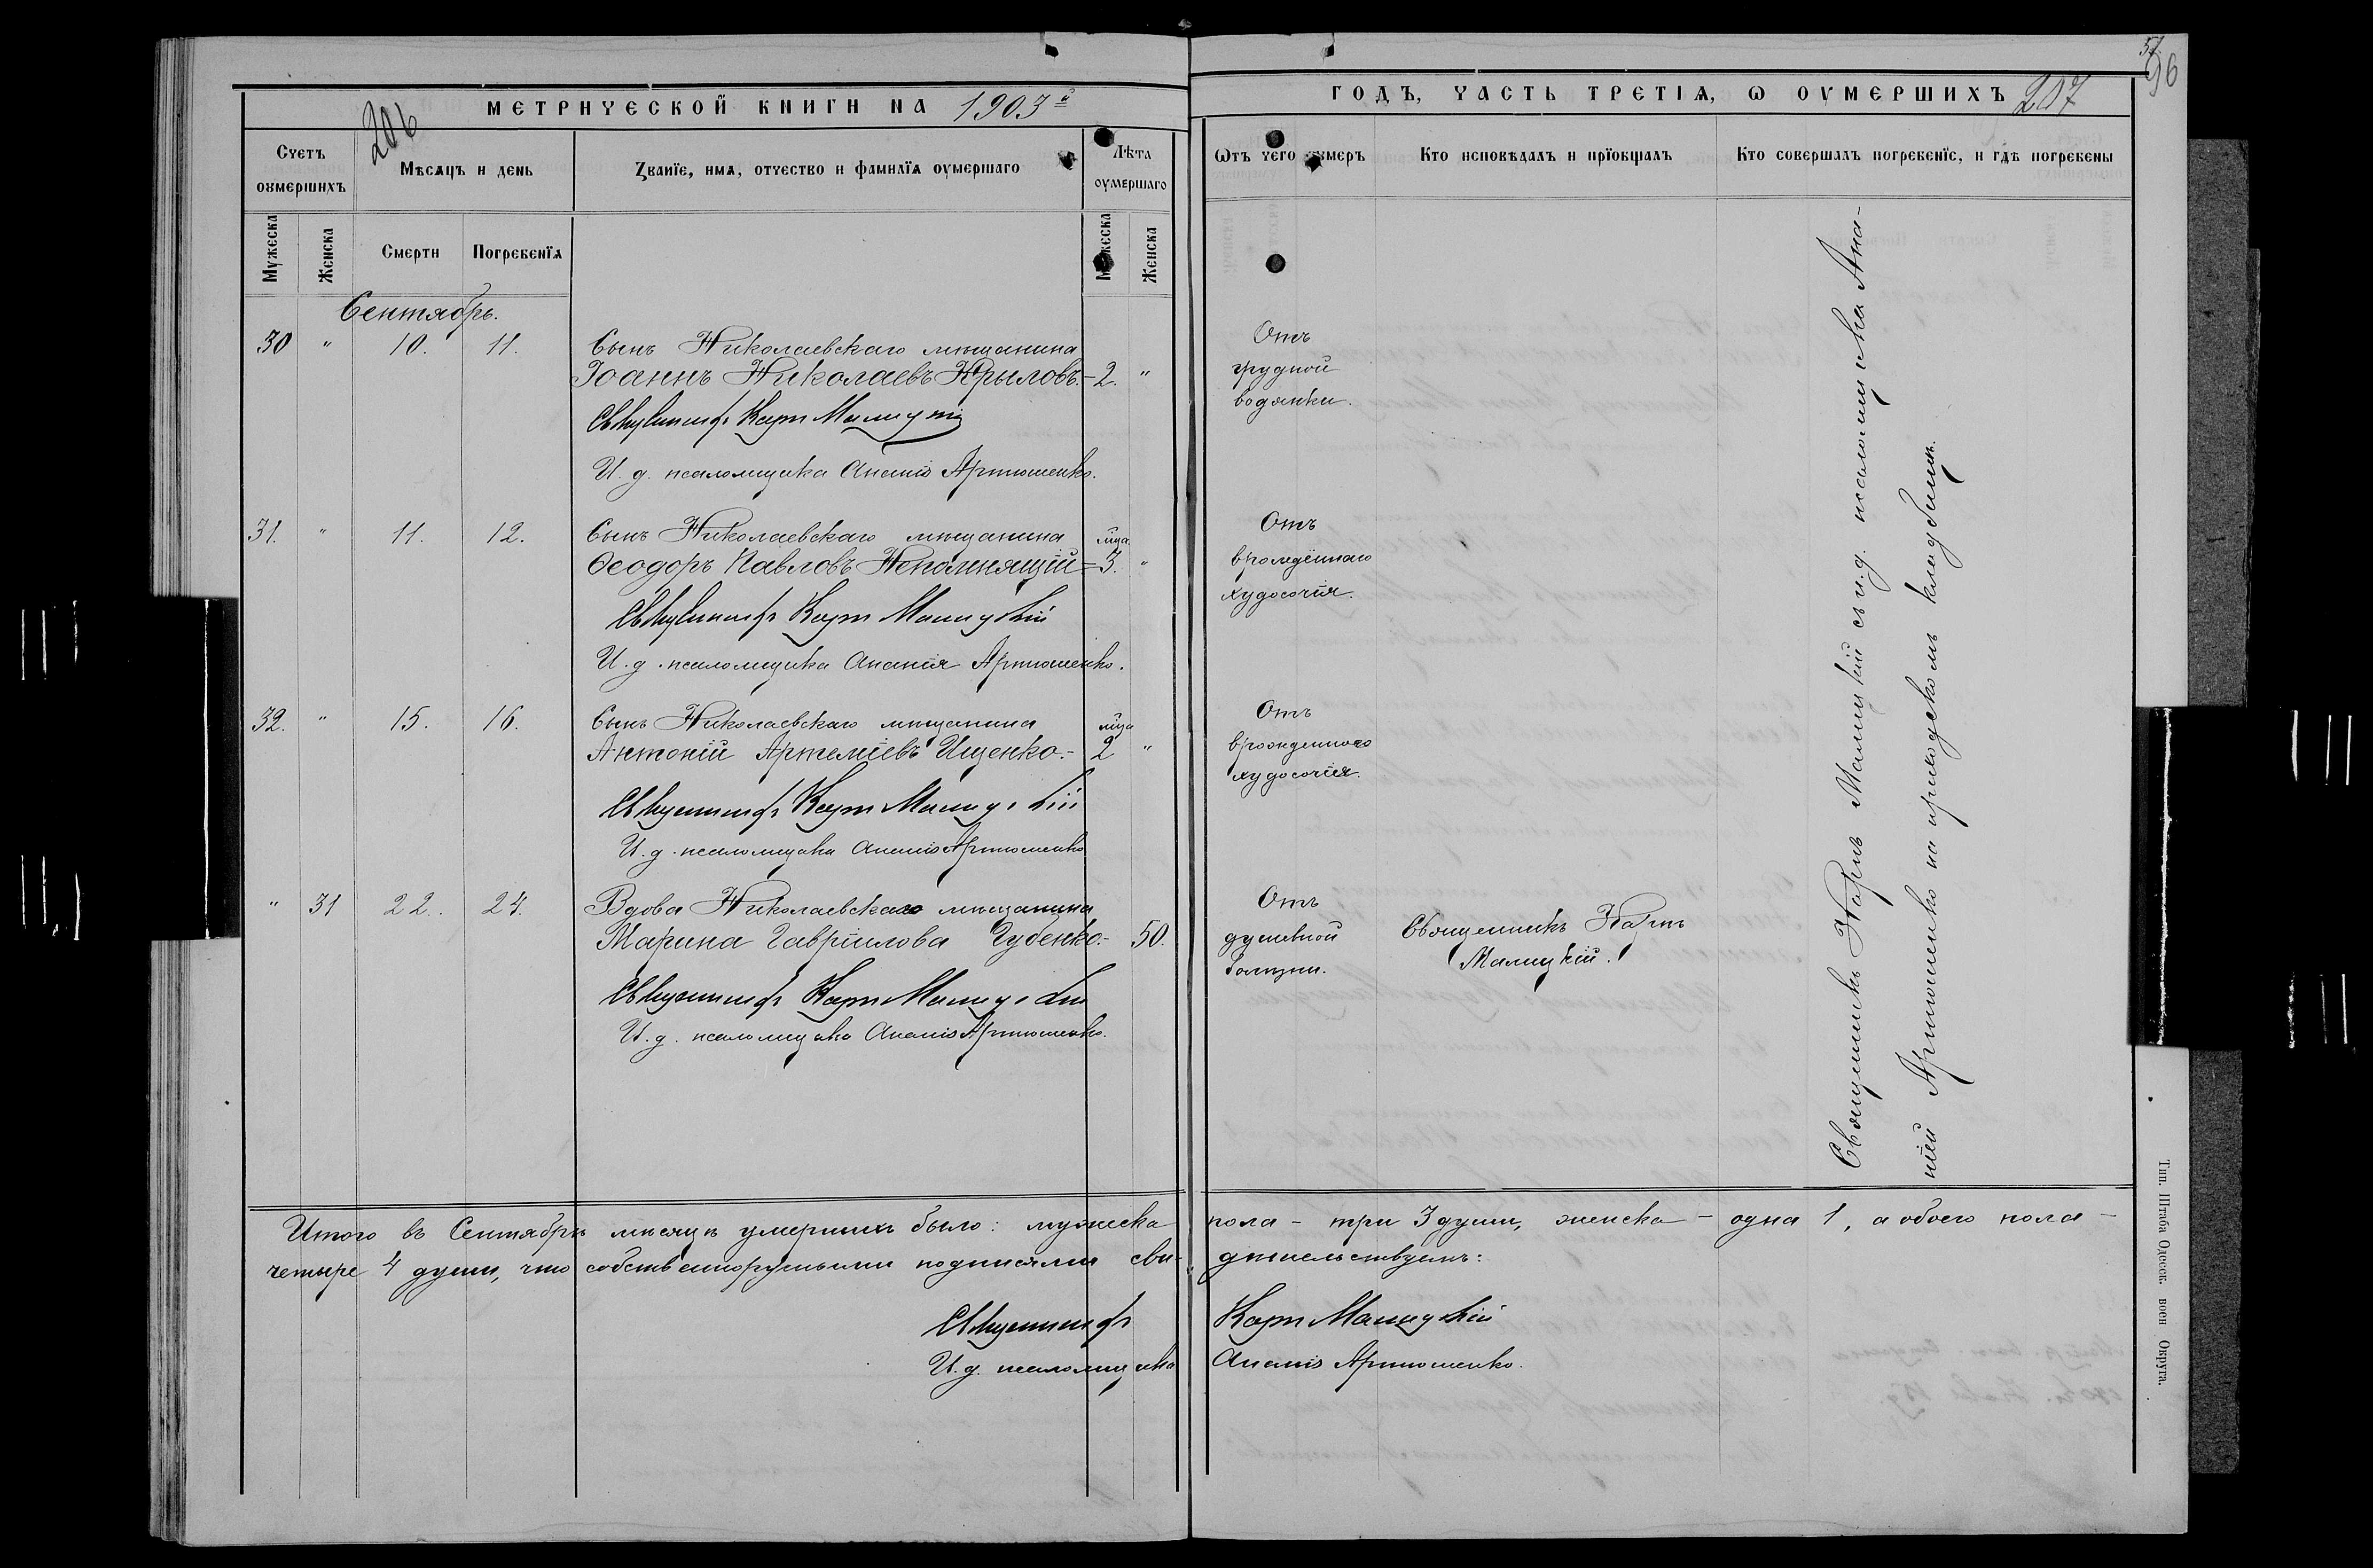 МЕТРИЧЕСКОЙ КНИГИ НА 1903й
206
Счетъ оумершихъ
Мѣсяцъ и день
Званїе, имя, отчество и фамилїя оумершаго
Лѣта оумершаго
Мужеска
Женска
Смерти
Погребенїя
Мужеска
Женска
Сентябрь.
30 " 10. 11. Сынъ Николаевскаго мѣщанина
Іоаннъ Николаевъ Крыловъ.- 2. "
Священникъ Карпъ Малицкій
И. д. псаломщика Ананія Артюшенко.
31. " 11. 12. Сынъ Николаевскаго мѣщанина мца.
Ѳеодоръ Павловъ Непомнящій- 3. "
Священникъ Карпъ Малицкій
И. д. псаломщика Ананія Артюшенко.
32. " 15. 16. Сынъ Николаевскаго мѣщанина мца
Антоній Артеміевъ Ищенко.- 2 "
Священникъ Карпъ Малицкій
И. д. псаломщика Ананія Артюшенко
" 31 22. 24. Вдова Николаевскаго мѣщанина
Марина Гавріилова Губенко.- 50.
Священникъ Карпъ Малицкій
И. д. псаломщика Ананія Артюшенко.
Итого въ Сентябрѣ мѣсяцѣ умершихъ было: мужеска
четыре 4 души, что собственноручными подписями сви-
Священникъ
И. д. псаломщика
57.
96
ГОДЪ, ЧАСТЬ ТРЕТІЯ, Ѡ ОУМЕРШИХЪ 207
Ѿтъ чего оумеръ
Кто исповѣдалъ и прїобщалъ
Кто совершалъ погребенїе, и гдѣ погребены
Отъ
грудной
водянки.
Отъ
врожденнаго
худосочія.
Отъ
врожденнаго
худосочія.
Отъ
душевной
болѣзни.
Священникъ Карпъ
Малицкій.
Священникъ Карпъ Малицкій съ и. д. псаломщика Ана-
ніей Артюшенко на приходскомъ кладбищѣ.
пола - три 3 души, женска - одна 1, а обоего пола -
дѣтельствуемъ:
Карпъ Малицкій
Ананія Артюшенко.
Тип. Штаба Одесск. воен Округа.